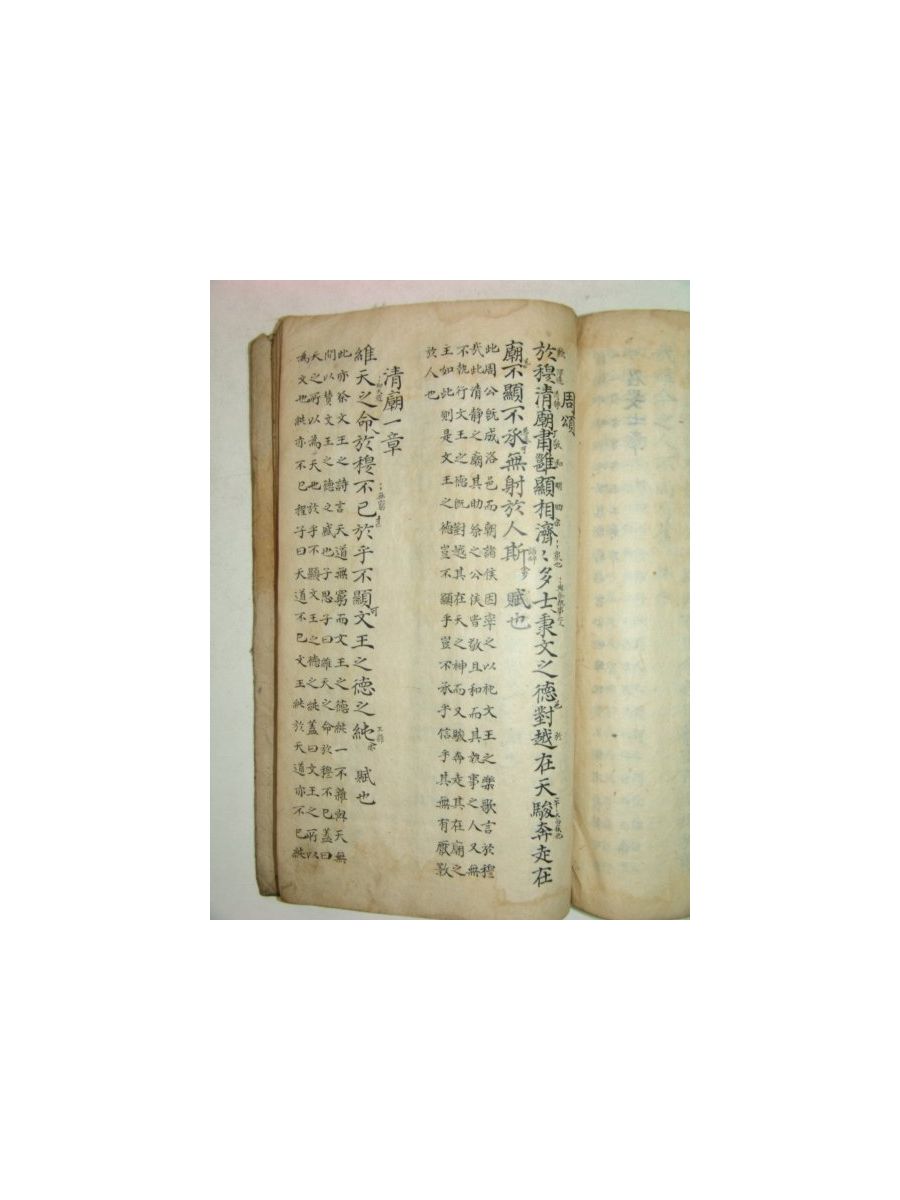 周頌
於穆清廟肅雝顯相濟〻多士秉文之德對越在天駿奔走在
廟不顯不承無射於人斯 賦也
此周公旣成洛邑而朝諸侯因率之以祀文王之樂歌言於穆
哉此清静之廟其助祭之公侯皆敬且和而其執事之人又無
不執行文王之德旣對越其在天之神而又駿奔走其在廟之
主如此則是文王之德豈不顯乎豈不承乎信乎其無有厭斁
於人也
清廟一章
維天之命於穆不已於乎不顯文王之德之純 賦也
此亦祭文王之詩言天道無窮而文王之德純一不雜與天無
間以贊文王之德之盛也子思子曰維天之命於穆不已蓋曰
天之所以爲天也於乎不顯文王之德之純蓋曰文王之所以
爲文也純亦不已程子曰天道不已文王純於天道亦不已純